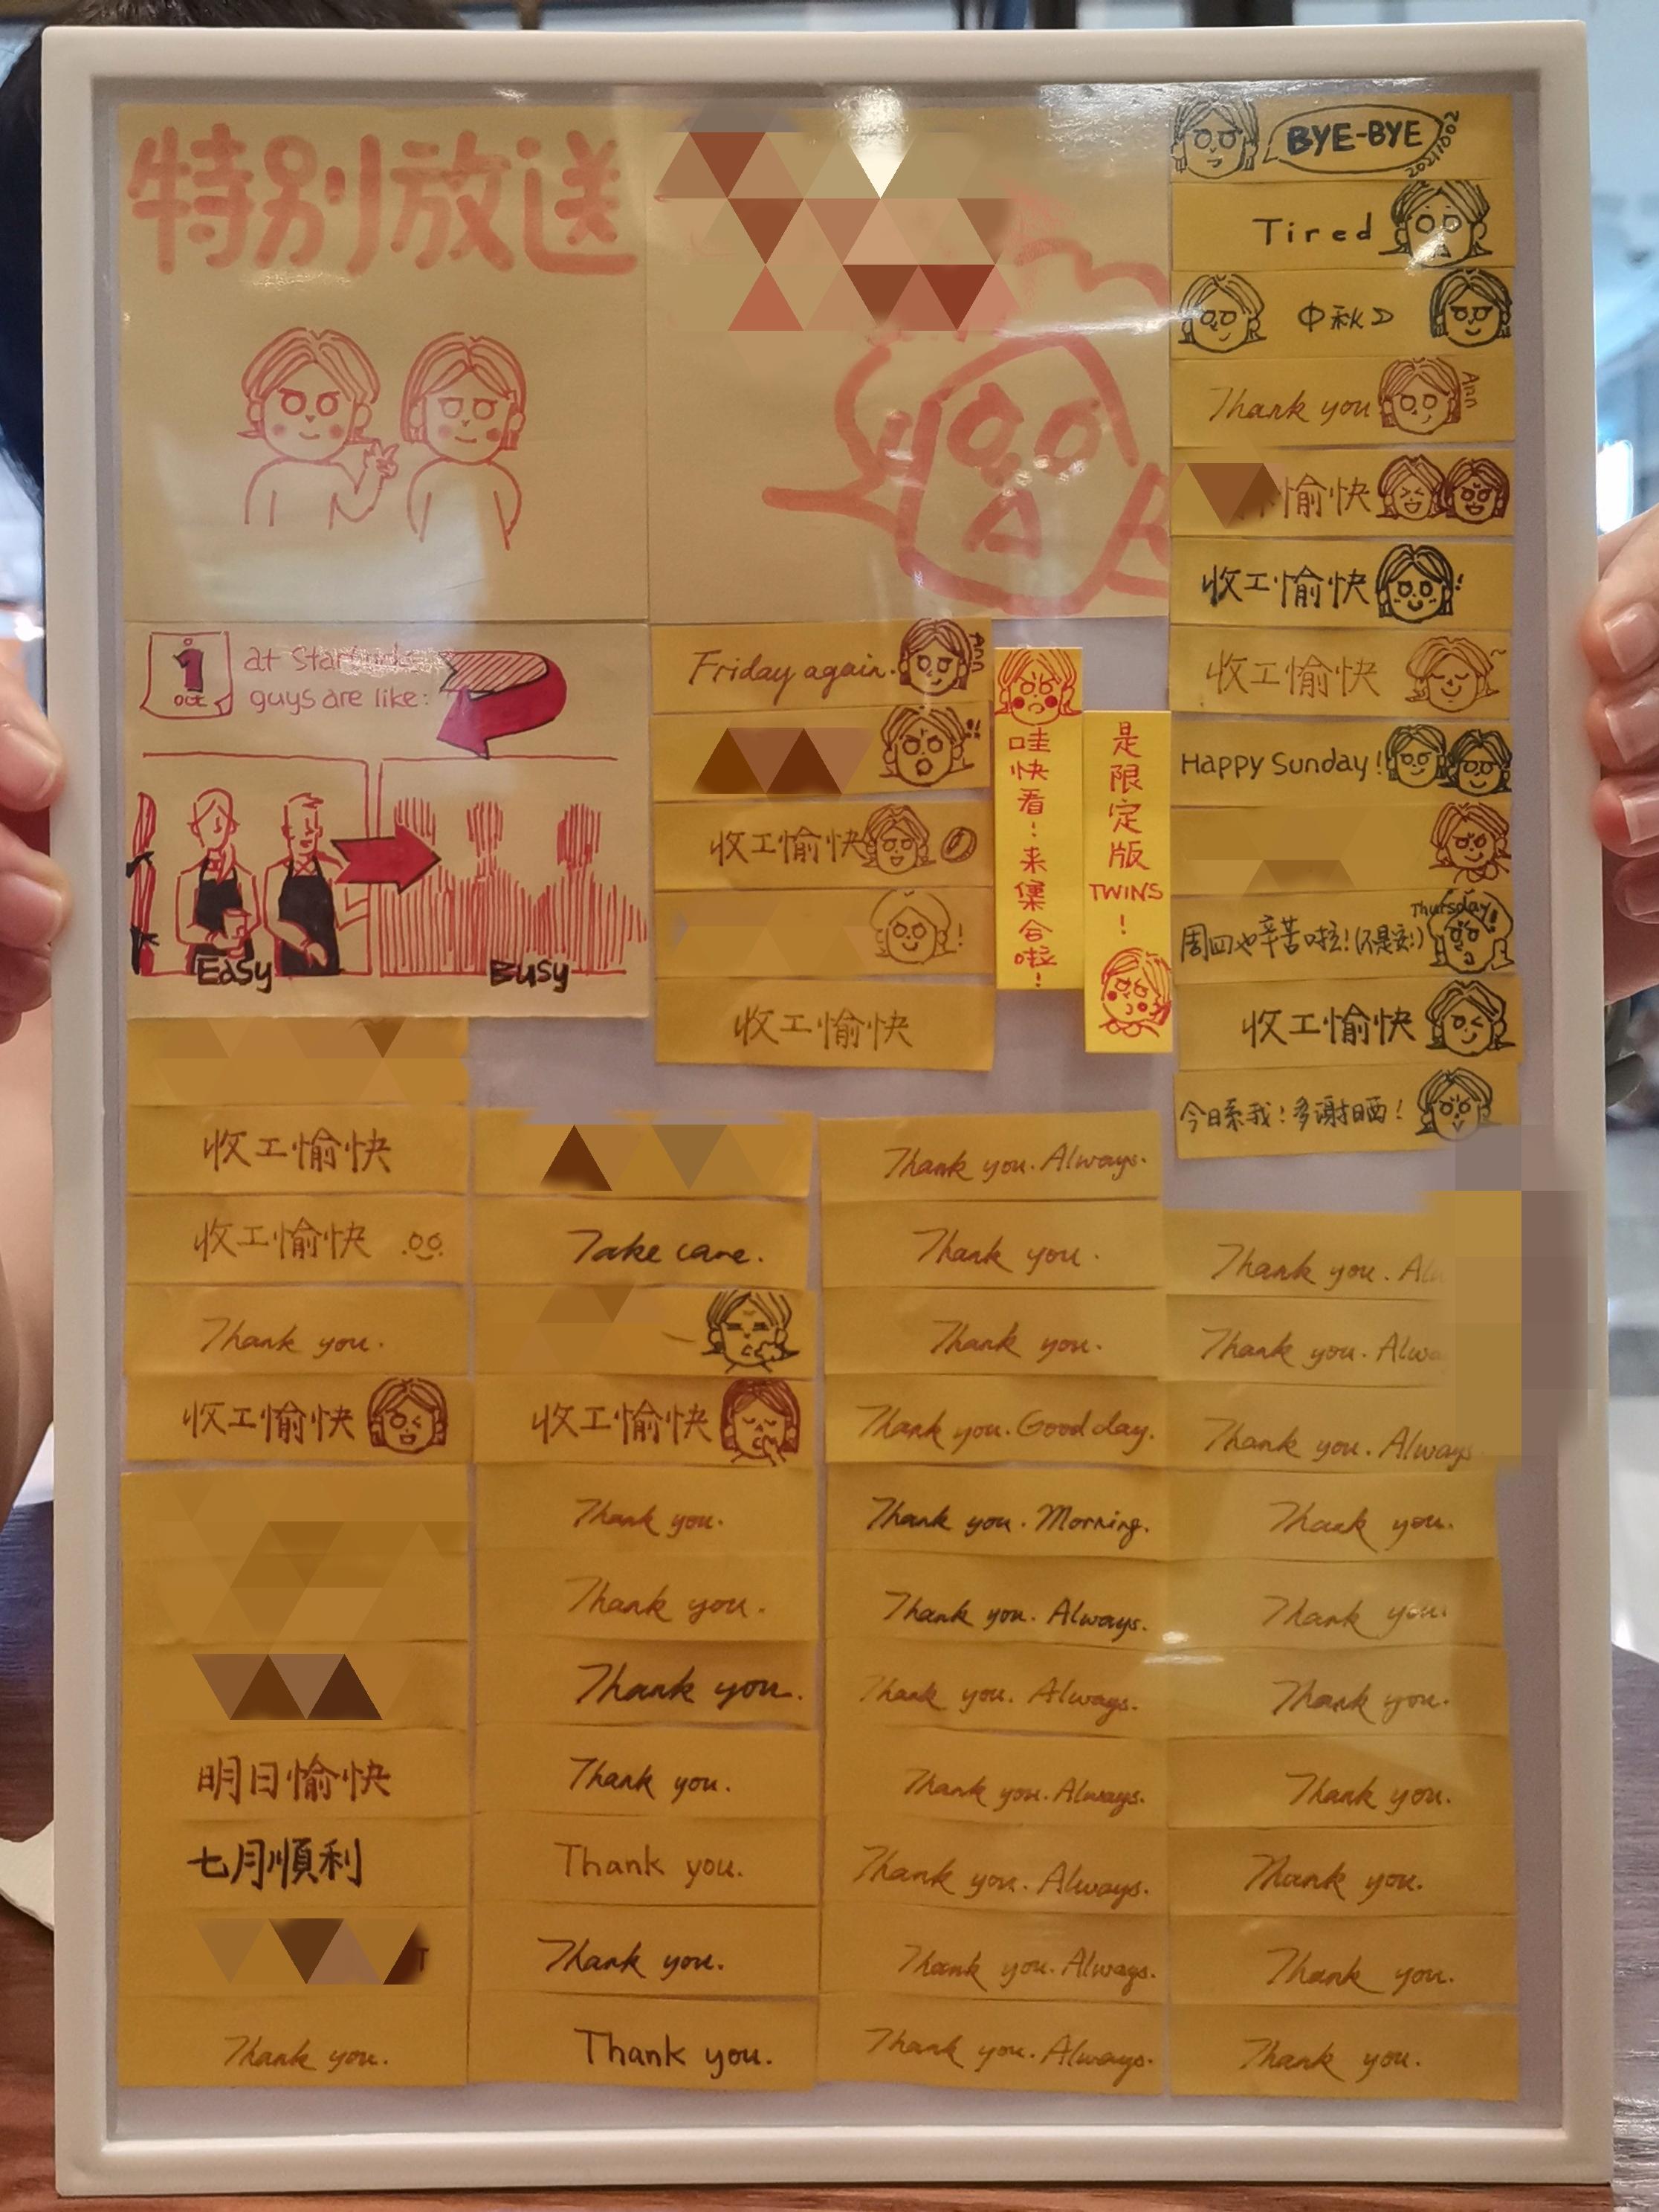 特別放送
1
OCT
at Starbucks
guys are like:
Easy
Busy
Friday again.
Ann
收工愉快
收工愉快
哇快看！来集合啦！
是限定版TWINS！
BYE-BYE
20211002
Tired
中秋
Thank you
Ann
愉快
收工愉快
收工愉快
Happy Sunday!
Thursday
周四也辛苦啦！(不是安!)
收工愉快
今日系我！多謝晒！
收工愉快
收工愉快
Thank you.
收工愉快
明日愉快
七月順利
Thank you.
Take care.
收工愉快
Thank you.
Thank you.
Thank you.
Thank you.
Thank you.
Thank you.
Thank you.
Thank you. Always.
Thank you.
Thank you.
Thank you. Good day.
Thank you. Morning.
Thank you. Always.
Thank you. Always.
Thank you. Always.
Thank you. Always.
Thank you. Always.
Thank you. Always.
Thank you.
Thank you.
Thank you. Always
Thank you.
Thank you.
Thank you.
Thank you.
Thank you.
Thank you.
Thank you.